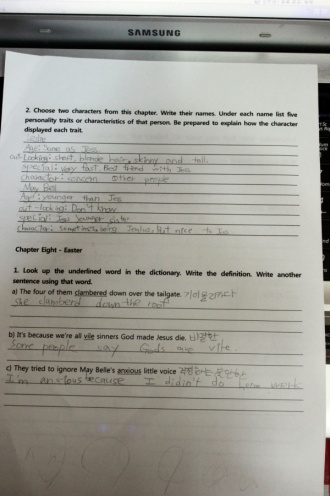 SAMSUNG
2. Choose two characters from this chapter. Write their names. Under each name list five
personality traits or characteristics of that person. Be prepared to explain how the character
displayed each trait.
Age: same as Jess
out-Looking: short, blonde hair, skinny and tall.
special: very fast. Best friend with Jess
character: concern other people
May Bell
Age: younger than Jess
out-looking: Don't know
special: Jess younger sister
character: sometimes being Jealous, But nice to Jess
Chapter Eight - Easter
1. Look up the underlined word in the dictionary. Write the definition. Write another
sentence using that word.
a) The four of them clambered down over the tailgate. 기어올라가다
she clamberd down the roof
b) It's because we're all vile sinners God made Jesus die. 비열한
Some people say Gods are vile.
c) They tried to ignore May Belle's anxious little voice 걱정하는
I'm anxious because I didin't do home work